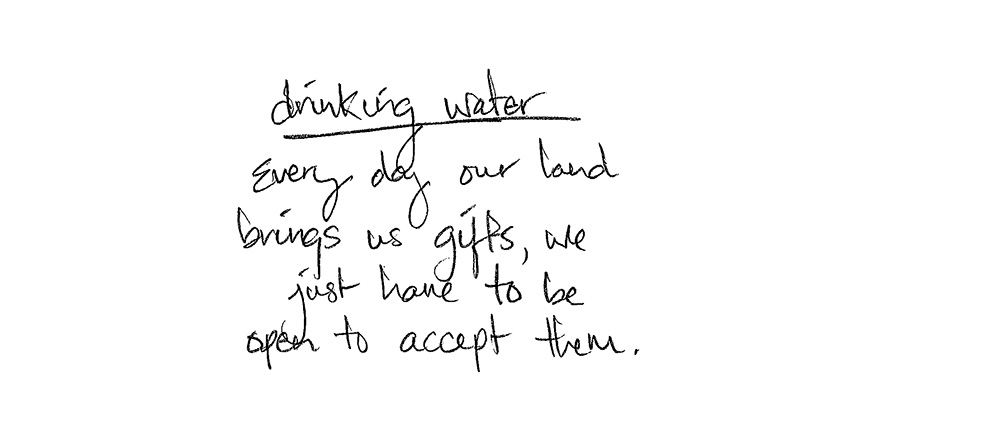 drinking water
Every day our land
brings us gifts, we
just have to be
open to accept them.